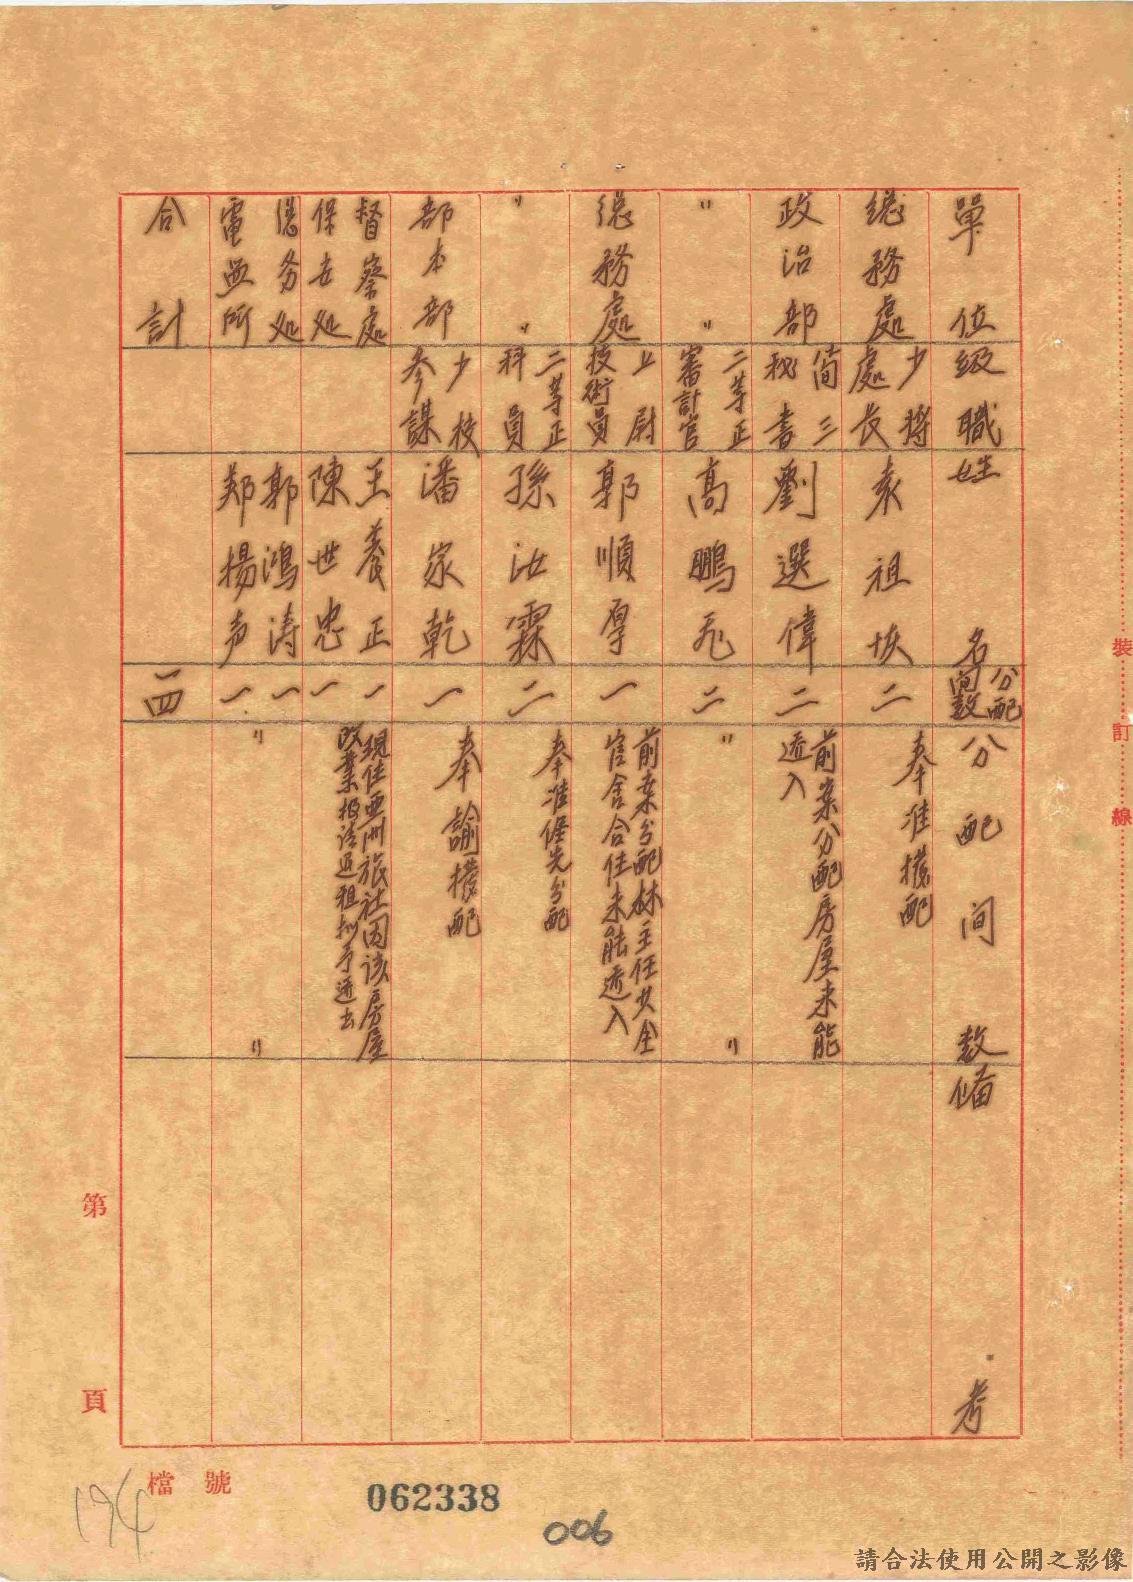 單位 級職 姓名 分配間數 分配间数 備考
總務處 少將處長 袁祖 二 奉准撥配
政治部 简三秘書 劉選偉 二 前案分配房屋未能
遷入
〃 〃 二等正審計官 高鵬飛 二 〃 〃
總務處 上尉技術員 郭順厚 一 前案分配林主任共仝
官舍合住未能遷入
〃 〃 二等正科員 孫汝霖 二 奉准優先分配
部本部 少校参謀 潘家乾 一 奉諭撥配
督察處 王養正 一 現住亚洲旅社因该房屋
保安处 陳世忠 一 改業退租拟予遷去
總务处 郭鴻涛 一 〃 〃
電監所 郑揚声 一
合計 一四
裝訂線
第 頁
檔號
062338
006
194
請合法使用公開之影像